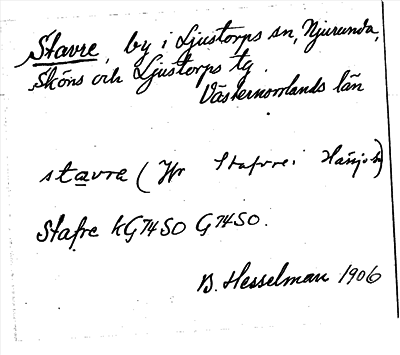 Stavre, by i Ljustorps sn, Njurunda,
Sköns och Ljustorps tg.
Västernorrlands län
stavra (Jfr Stafvre i
Stafre kG74SO G74SO.
B. Hesselman 1906